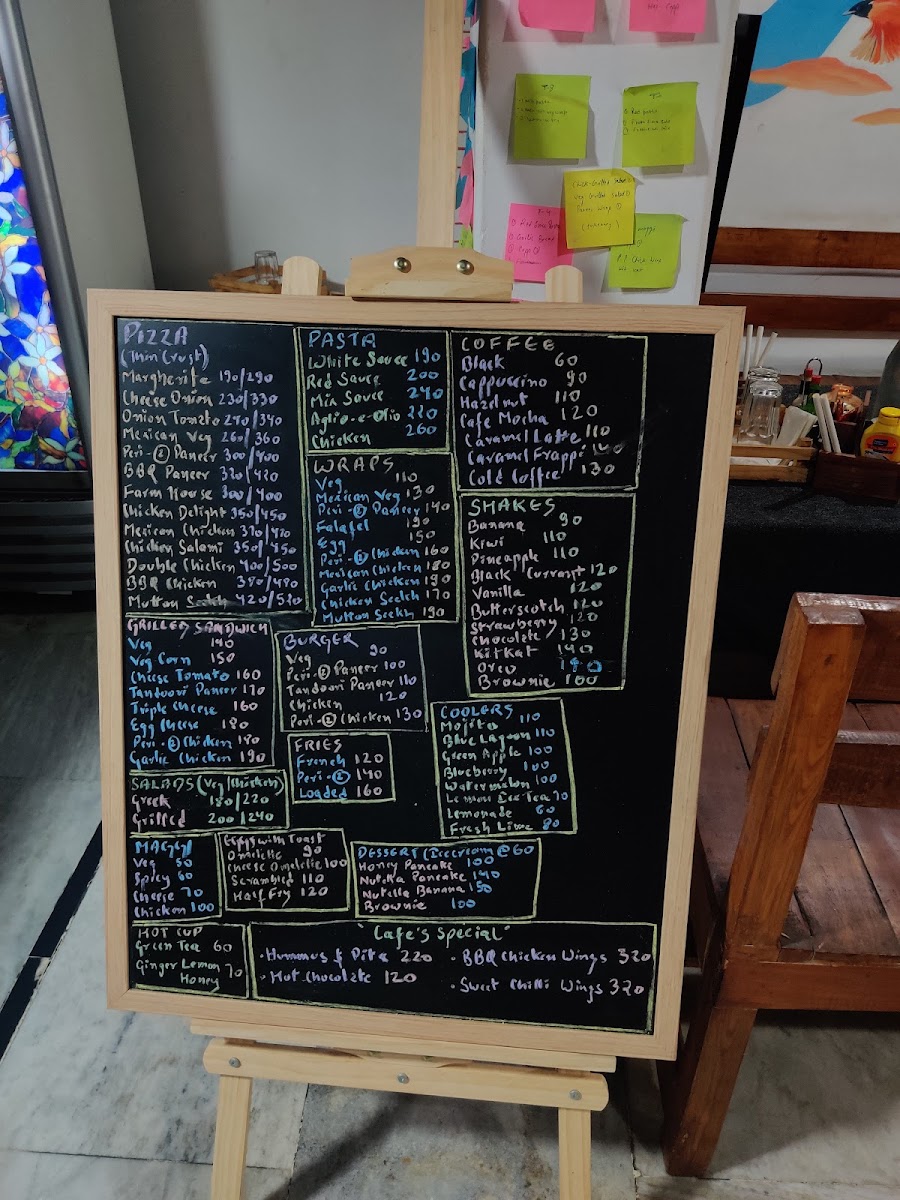 PIZZA
(Thin Crust)
Margherita 190/290
Cheese Onion 230/330
Onion Tomato 240/340
Mexican Veg 260/360
Peri-② Paneer 300/400
BBQ Paneer 320/420
Farm House 300/400
Chicken Delight 350/450
Mexican Chicken 370/470
Chicken Salami 350/450
Double Chicken 400/500
BBQ Chicken 380/480
Mutton Seekh 420/520
PASTA
White Sauce 190
Red Sauce 200
Mix Sauce 240
Aglio-e-Olio 220
Chicken 260
COFFEE
Black 60
Cappuccino 90
Hazelnut 110
Cafe Mocha 120
Caramel Latte 110
Caramel Frappe
Cold Coffee 130
WRAPS
Veg 110
Mexican Veg 130
Peri-② Paneer 140
Falafel 190
Egg 150
Peri-② Chicken 160
Mexican Chicken 180
Garlic Chicken 190
Chicken Seekh 170
Mutton Seekh 190
SHAKES
Banana 90
Kiwi 110
Pineapple 110
Black Currant 120
Vanilla 120
Butterscotch 120
Strawberry 120
Chocolate 130
Kitkat 140
Oreo 140
Brownie 160
GRILLED SANDWICH
Veg 140
Veg Corn 150
Cheese Tomato 160
Tandoori Paneer 170
Triple Cheese 160
Egg Cheese 180
Peri-② Chicken 180
Garlic Chicken 190
BURGER
Veg 90
Peri-② Paneer 100
Tandoori Paneer 110
Chicken 120
Peri-② Chicken 130
FRIES
French 120
Peri-② 140
Loaded 160
COOLERS
Mojito 110
Blue Lagoon 110
Green Apple 100
Blueberry 100
Watermelon 100
Lemon Ice Tea 70
Lemonade 60
Fresh Lime 80
SALADS (Veg/Chicken)
Greek 180/220
Grilled 200/240
MAGGI
Veg 50
Spicy 60
Cheese 70
Chicken 100
EGGS with Toast
Omelette 90
Cheese Omelette 100
Scrambled 110
Half Fry 120
DESSERT (Icecream @ 60
Honey Pancake 100
Nutella Pancake 140
Nutella Banana 150
Brownie 100
HOT CUP
Green Tea 60
Ginger Lemon 70
Honey
"Cafe's Special"
· Hummus & Pita 220
· Hot Chocolate 120
· BBQ Chicken Wings 320
· Sweet Chilli Wings 320